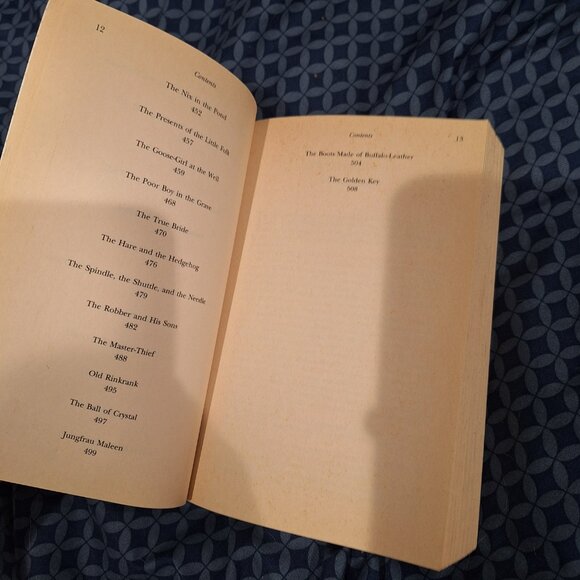 12
Contents
The Nix in the Pond
452
The Presents of the Little Folk
457
The Goose-Girl at the Well
459
The Poor Boy in the Grave
468
The True Bride
470
The Hare and the Hedgehog
476
The Spindle, the Shuttle, and the Needle
479
The Robber and His Sons
482
The Master-Thief
488
Old Rinkrank
495
The Ball of Crystal
497
Jungfrau Maleen
499
Contents
13
The Boots Made of Buffalo-Leather
504
The Golden Key
508